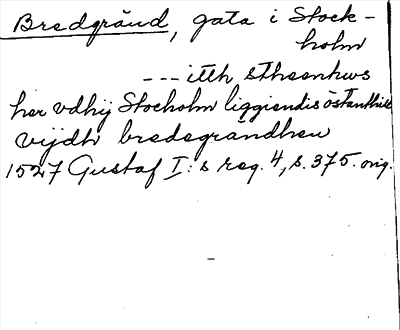 Bredgränd, gata i Stock-
holm
--- itth stheenhws
her vdhij Stocholm liggiendis östanthill
vijdh bredegrandhen
1527 Gustaf I:s reg. 4, s. 375. orig.